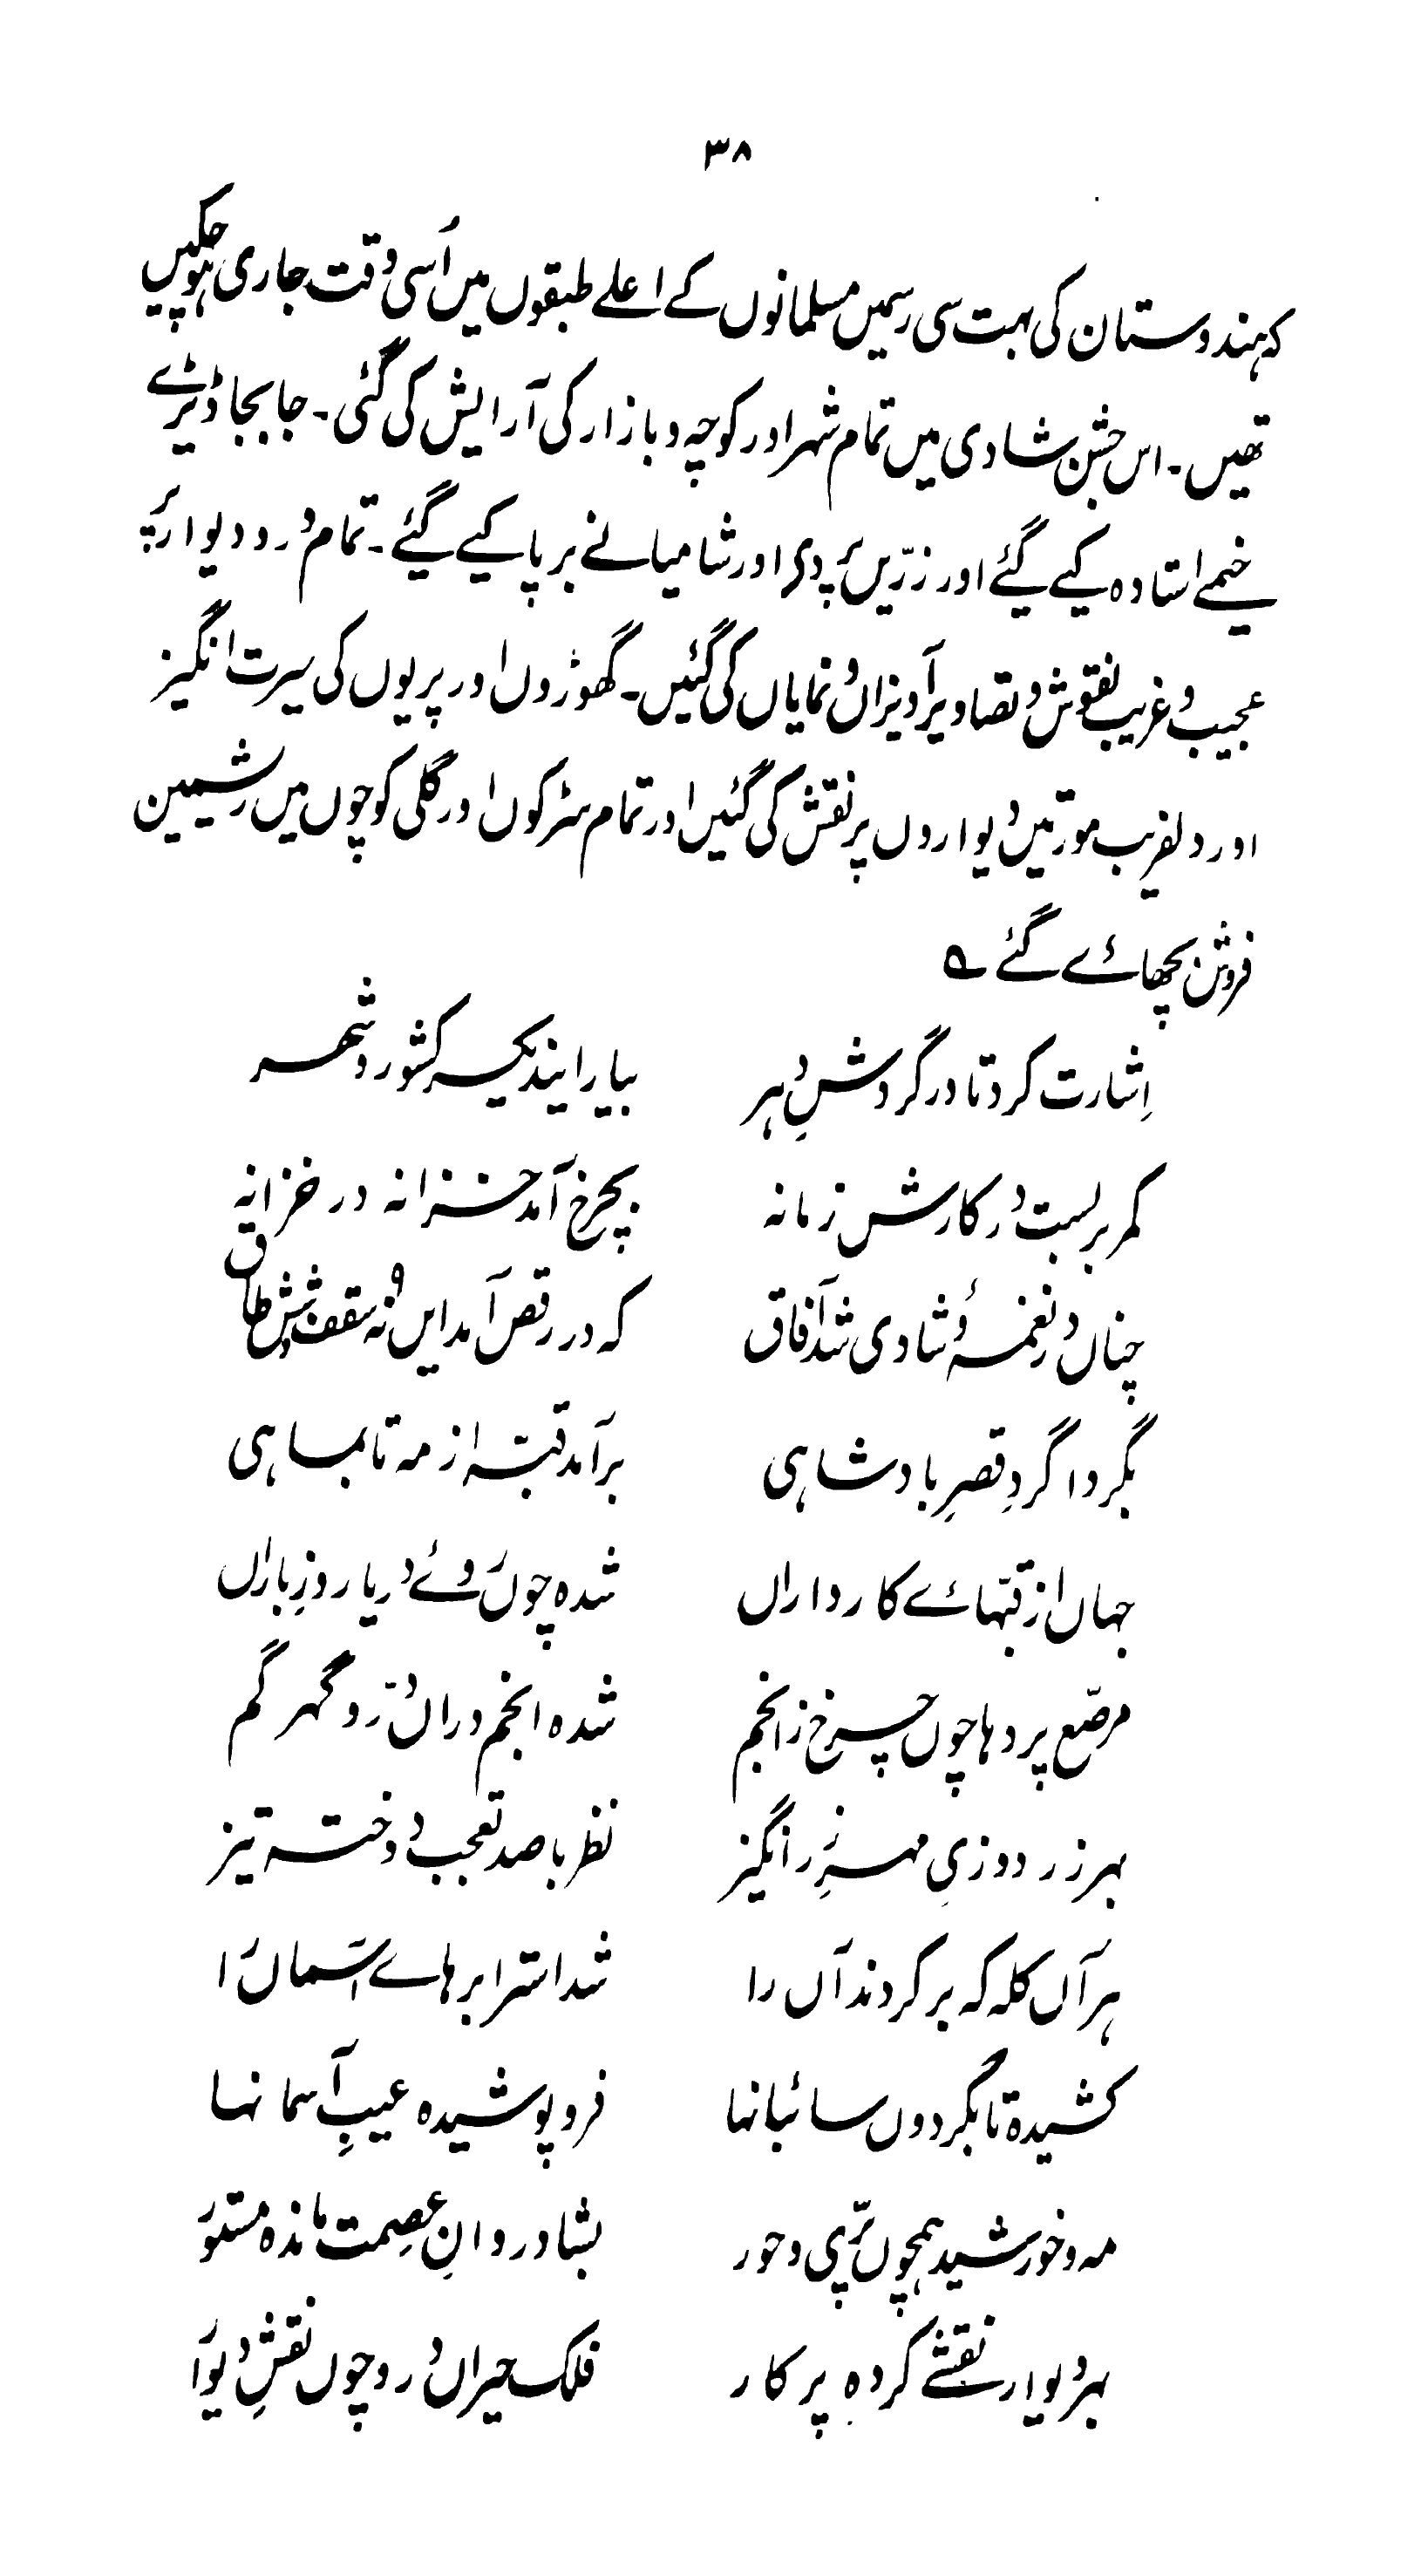 ۳۸
کہ ہندوستان کی بہت سی رسمیں مسلمانوں کے اعلے طبقوں میں اُسی وقت جاری ہوچکیں
تھیں۔ اس جشن شادی میں تمام شہر اور کوچہ و بازار کی آرایش کی گئی۔ جابجا ڈیرے
خیمے استادہ کیے گئے اور زرّیں پردی اور شامیانے برپا کیے گیے۔ تمام در و دیوار پر
عجیب و غریب نقوش و تصاویر آویزاں و نمایاں کی گئیں۔ گھوڑوں اور پریوں کی سیرت انگیز
اور دلفریب مورتیں دیواروں پر نقش کی گئیں اور تمام سڑکوں اور گلی کوچوں میں رشیمین
فروش بچھائے گئے ؎
اِشارت کرد تا در گردشِ دہر بیارایند یکسر کشور و شہر
کمر بربست در کارش زمانہ بچرخ آمد خزانہ در خزانہ
چناں در نغمۂ و شادی شد آفاق کہ در رقص آمد ایں نُہ سقف شش طاق
بگرداگردِ قصرِ بادشاہی برآمد قبّہ از مہ تا بماہی
جہاں از قبّہائے کارداراں شدہ چوں روئے دریا روزِ باراں
مرصّع پردہا چوں چرخ ز انجم شدہ انجم دراں دُرّ و گہر گم
بہر زر دوزیِ مہر زر انگیز نظر با صد تعجب دوختہ تیز
ہر آں کلہ کہ بر کردند آں را شد استر ابرہائے آسماں را
کشیدہ تا بگردوں سائبانہا فرو پوشیدہ عیبِ آسمانہا
مہ و خورشید ہمچوں پری و حور بشادروانِ عصمت ماندہ مستور
بہر دیوار نقشے کردہ پرکار فلک حیراں درو چوں نقشِ دیوار